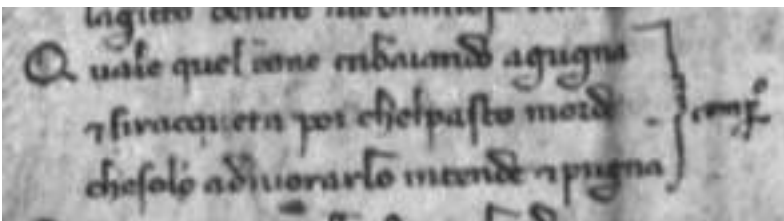 gitto dentro
Quale quel cane abaiando agugna
⁊ siracqueta poi chelpasto morde
chesolo adivorarlo intende ⁊ pugna